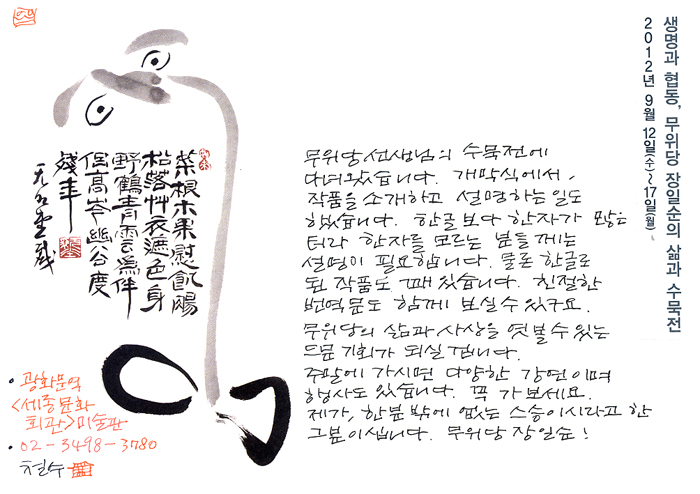 생명과 협동, 무위당 장일순의 삶과 수묵전
2012년 9월 12일(수)~17일(월)
菜根木果慰飢腸
松落艸衣遮色身
野鶴青雲爲伴
但高岑幽谷度
殘年
무위당 선생님의 수묵전에
다녀왔습니다. 개막식에서,
작품을 소개하고 설명하는 일도
했습니다. 한글보다 한자가 많은
터라 한자를 모르는 분들께는
설명이 필요합니다. 물론 한글로
된 작품도 꽤 있습니다. 친절한
번역문도 함께 보실 수 있구요.
무위당의 삶과 사상을 엿볼 수 있는
드문 기회가 되실 겁니다.
주말에 가시면 다양한 강연이며
행사도 있습니다. 꼭 가보세요.
제가, 한분 밖에 없는 스승이시라고 한
그분이십니다. 무위당 장일순!
· 광화문역
<세종문화
회관>미술관
· 02-3498-3780
철수